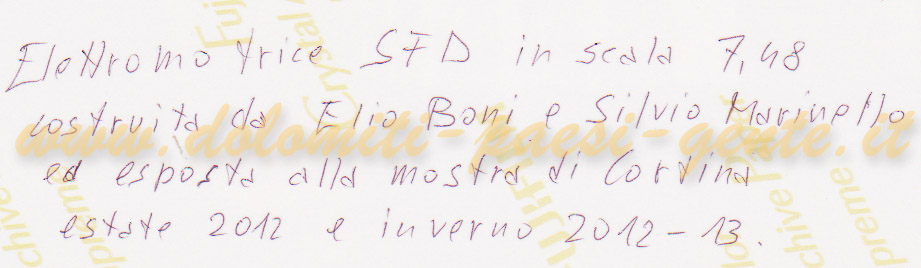 Elettromotrice SFD in scala 7,48
costruita da Elio Boni e Silvio Marinello
www.dolomiti-paesi-gente.it
ed esposta alla mostra di Cortina
estate 2012 e inverno 2012-13.